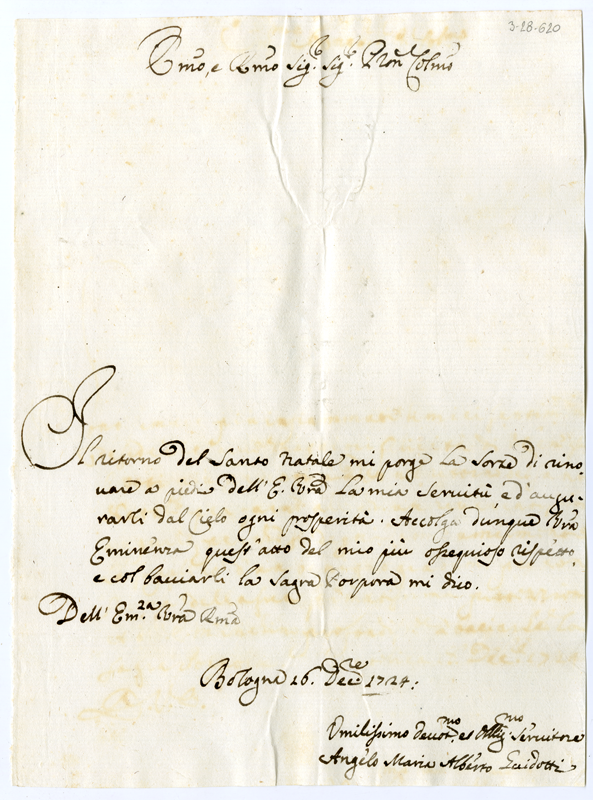 3-28-620
Emo, e Rmo Sig.r Sig.r Pron Colmo
Il ritorno del Santo Natale mi porge la sorte di rino-
uare a piedi dell'E. Vra la mia seruitù e d'augu-
rarli dal Cielo ogni prosperità. Accolga dunque Vra
Eminenza quest'atto del mio più ossequioso rispetto,
e col bacciarli la Sagra Porpora mi dico.
Dell'Em.za Vra Rma
Bologna 16. Dec.re 1724:
Vmilissimo deuot.mo et Obblig.mo Seruitore
Angelo Maria Alberto Guidotti